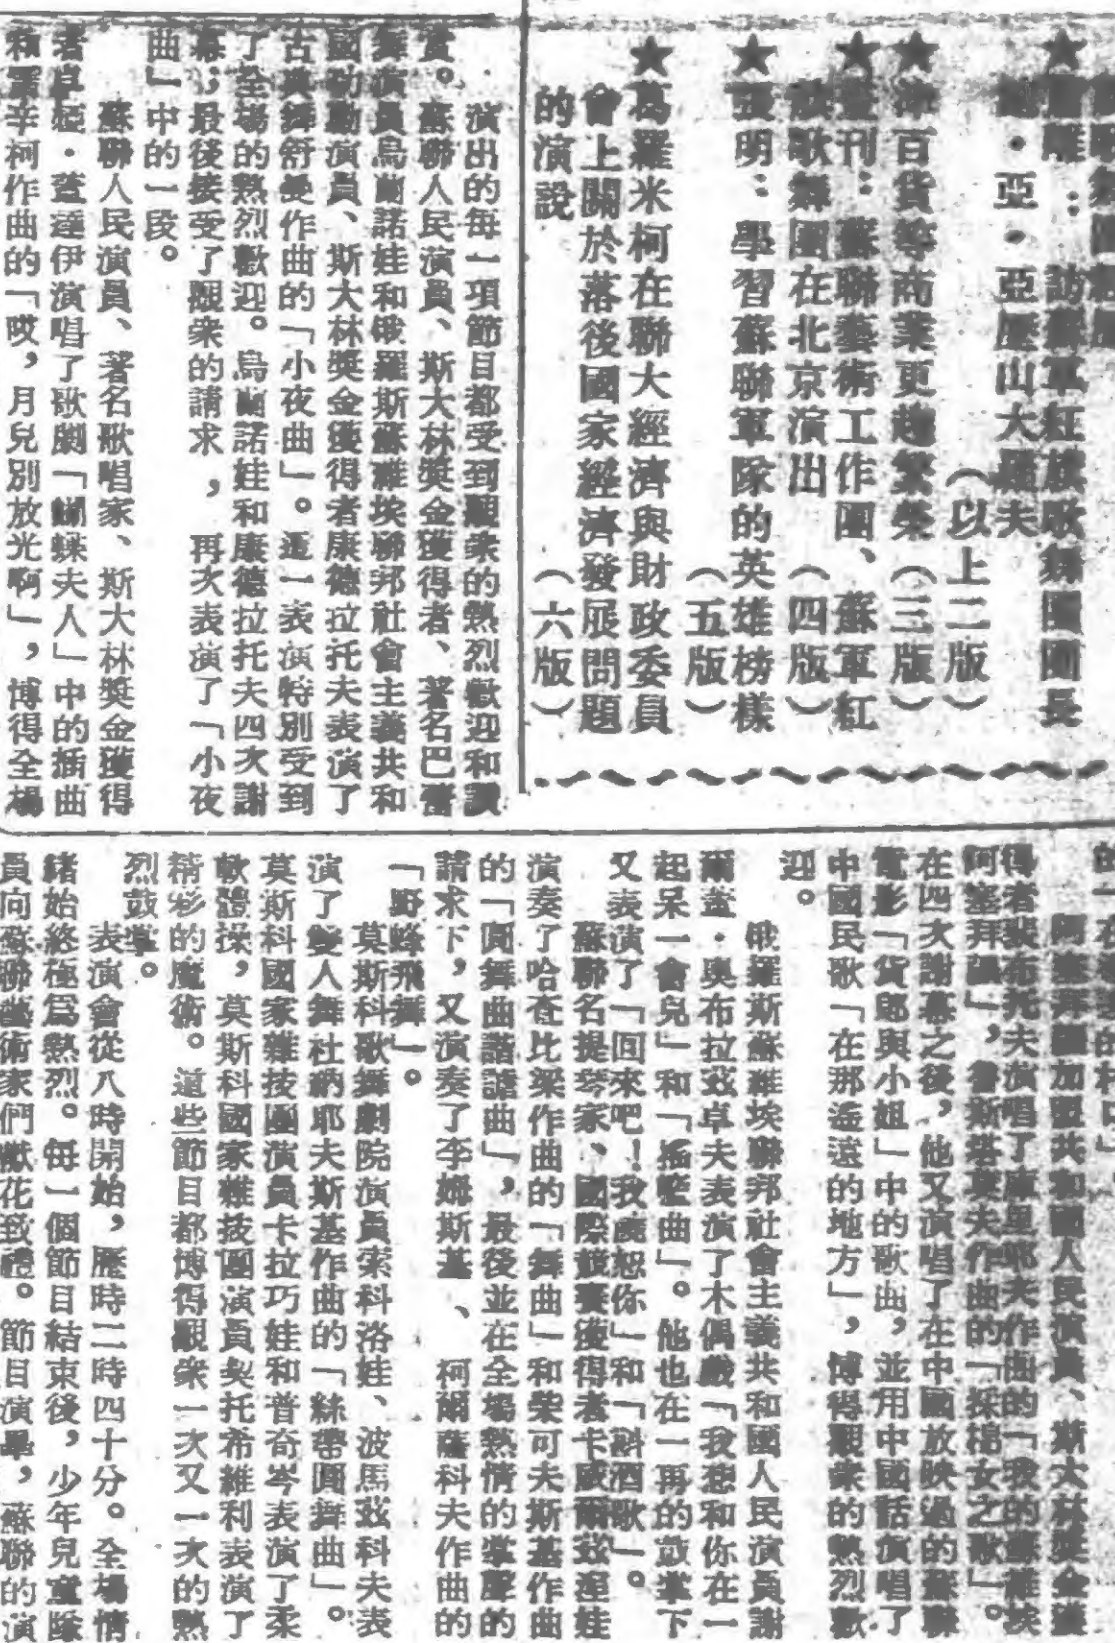 ★訪蘇軍紅旗歌舞團團長
亞·亞歷山大羅夫
（以上二版）
百貨等商業更趨繁榮（三版）
★畫刊：蘇聯藝術工作團、蘇軍紅
旗歌舞團在北京演出（四版）
★張明：學習蘇聯軍隊的英雄榜樣
（五版）
★葛羅米柯在聯大經濟與財政委員
會上關於落後國家經濟發展問題
的演說（六版）
演出的每一項節目都受到觀衆的熱烈歡迎和讚
賞。蘇聯人民演員、斯大林獎金獲得者、著名巴蕾
舞演員烏蘭諾娃和俄羅斯蘇維埃聯邦社會主義共和
國功勳演員、斯大林獎金獲得者康德拉托夫表演了
古典舞舒曼作曲的「小夜曲」。這一表演特別受到
了全場的熱烈歡迎。烏蘭諾娃和康德拉托夫四次謝
幕；最後接受了觀衆的請求，再次表演了「小夜
曲」中的一段。
蘇聯人民演員、著名歌唱家、斯大林獎金獲得
者卓婭·蓋達伊演唱了歌劇「蝴蝶夫人」中的插曲
和霍辛柯作曲的「哎，月兒別放光啊」，博得全場
阿塞拜疆加盟共和國人民演員、斯大林獎金獲
得者裴布托夫演唱了庫里耶夫作曲的「我的蘇維埃
阿塞拜疆」，魯斯塔莫夫作曲的「採棉女之歌」。
在四次謝幕之後，他又演唱了在中國放映過的蘇聯
電影「貨郎與小姐」中的歌曲，並用中國話演唱了
中國民歌「在那遙遠的地方」，博得觀衆的熱烈歡
迎。
俄羅斯蘇維埃聯邦社會主義共和國人民演員謝
爾蓋·奧布拉茲卓夫表演了木偶戲「我想和你在一
起呆一會兒」和「搖籃曲」。他也在一再的鼓掌下
又表演了「回來吧！我寬恕你」和「斟酒歌」。
蘇聯名提琴家、國際競賽獲得者卡威爾茲涅娃
演奏了哈查比梁作曲的「舞曲」和柴可夫斯基作曲
的「圓舞曲諧謔曲」，最後並在全場熱情的掌聲的
請求下，又演奏了李姆斯基、柯爾薩科夫作曲的
「野蜂飛舞」。
莫斯科歌舞劇院演員索科洛娃、波馬茲科夫表
演了雙人舞杜納耶夫斯基作曲的「絲帶圓舞曲」。
莫斯科國家雜技團演員卡拉巧娃和普奇岑表演了柔
軟體操，莫斯科國家雜技團演員契托希維利表演了
精彩的魔術。這些節目都博得觀衆一次又一次的熱
烈鼓掌。
表演會從八時開始，歷時二時四十分。全場情
緒始終極爲熱烈。每一個節目結束後，少年兒童隊
員向蘇聯藝術家們獻花致禮。節目演畢，蘇聯的演